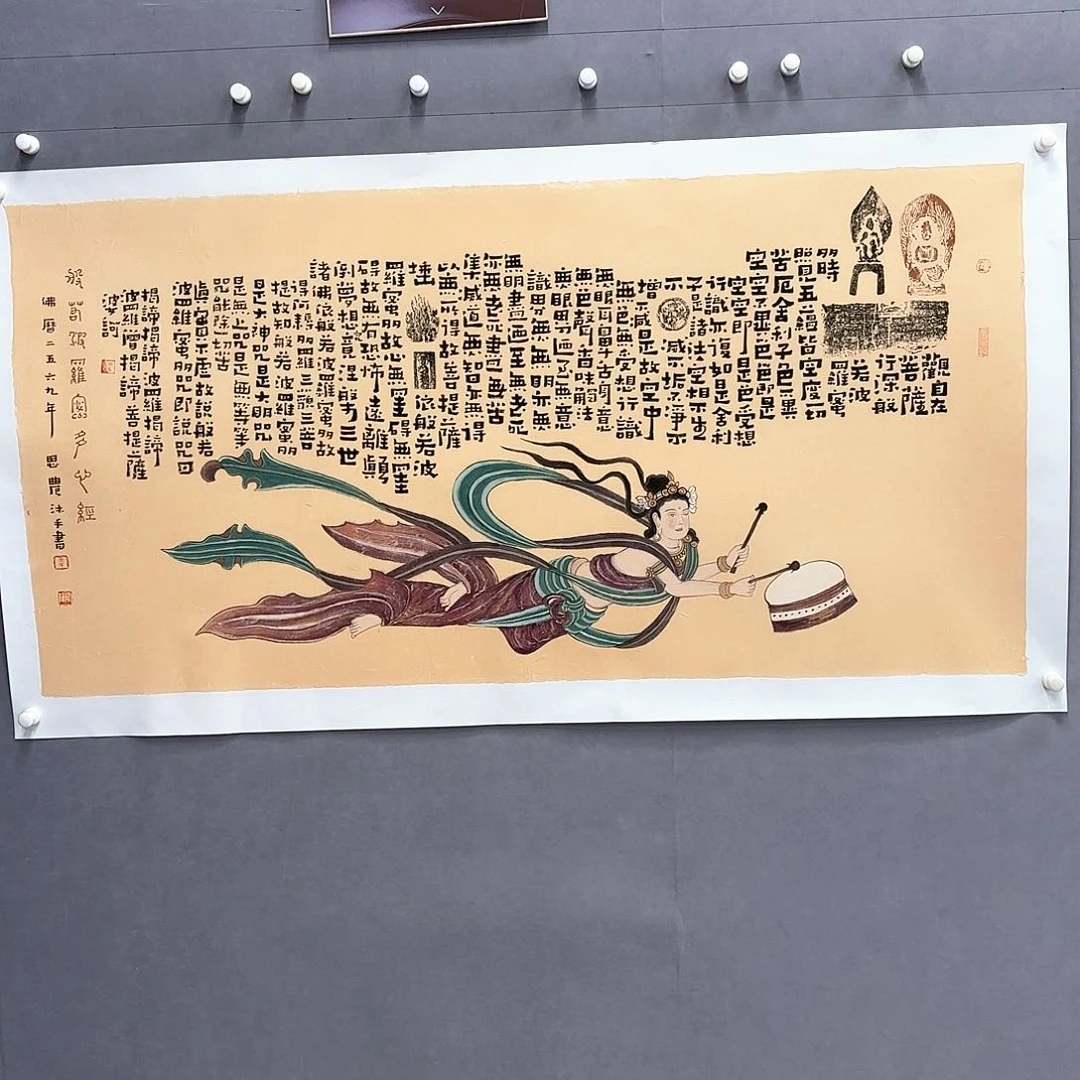 觀自在
菩薩
行深般
若波
羅蜜
多時
照見五蘊皆空度一切
苦厄舍利子色異
空空不異色色即是
空空即是色受想
行識亦復如是舍利
子是諸法空相不生
不滅不垢不淨不
增不減是故空中
無色無受想行識
無眼耳鼻舌身意
無色聲香味觸法
無眼界乃至無意
識界無無明亦無
無明盡乃至無老死
亦無老死盡無苦
集滅道無智亦無得
以無所得故菩提薩
埵依般若波
羅蜜多故心無罣礙無罣
礙故無有恐怖遠離顛
倒夢想竟涅槃三世
諸佛依般若波羅蜜多故
得阿耨多羅三藐三菩
提故知般若波羅蜜多
是大神咒是大明咒
是無上咒是無等等
咒能除一切苦
真實不虛故說般若
波羅蜜多咒即說咒曰
揭諦揭諦波羅揭諦
波羅僧揭諦菩提薩
婆訶
般若波羅蜜多心經
佛曆二五六九年 思農沐手書